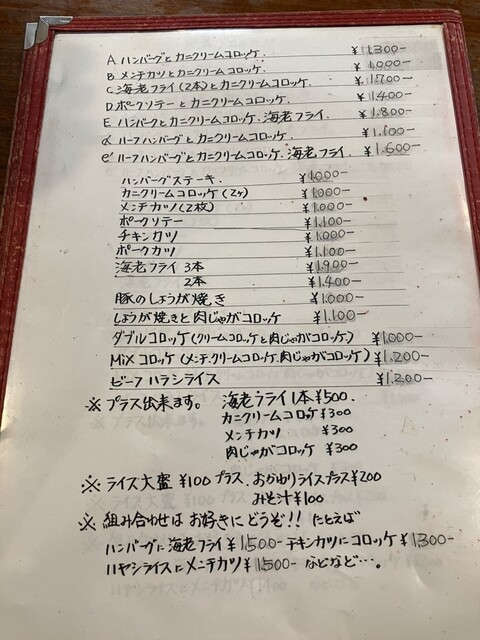 A ハンバーグとカニクリームコロッケ. ¥1,300-
B メンチカツとカニクリームコロッケ. ¥1,000-
C 海老フライ(2本)とカニクリームコロッケ. ¥1,700-
D ポークソテーとカニクリームコロッケ. ¥1,400-
E ハンバーグとカニクリームコロッケ.海老フライ. ¥1,800-
ハーフハンバーグとカニクリームコロッケ ¥1,100-
ハーフハンバーグとカニクリームコロッケ.海老フライ. ¥1,600-
ハンバーグステーキ. ¥1,000-
カニクリームコロッケ(2ヶ) ¥1,000-
メンチカツ(2枚) ¥1,000-
ポークソテー ¥1,100-
チキンカツ ¥1,000-
ポークカツ ¥1,100-
海老フライ 3本 ¥1,900-
2本 ¥1,400-
豚のしょうが焼き ¥1,000-
しょうが焼きと肉じゃがコロッケ ¥1,100-
ダブルコロッケ(クリームコロッケと肉じゃがコロッケ) ¥1,000-
Mixコロッケ(メンチ.クリームコロッケ.肉じゃがコロッケ) ¥1,200-
ビーフハラシライス ¥1,200-
※ プラス出来ます。 海老フライ1本¥500.
カニクリームコロッケ¥300
メンチカツ ¥300
肉じゃがコロッケ ¥300
※ ライス大盛 ¥100プラス.おかわりライスプラス¥200
みそ汁¥100
※ 組み合わせはお好きにどうぞ!! たとえば
ハンバーグに海老フライ¥1500- チキンカツにコロッケ¥1300-
ハヤシライスにメンチカツ¥1500- などなど…。